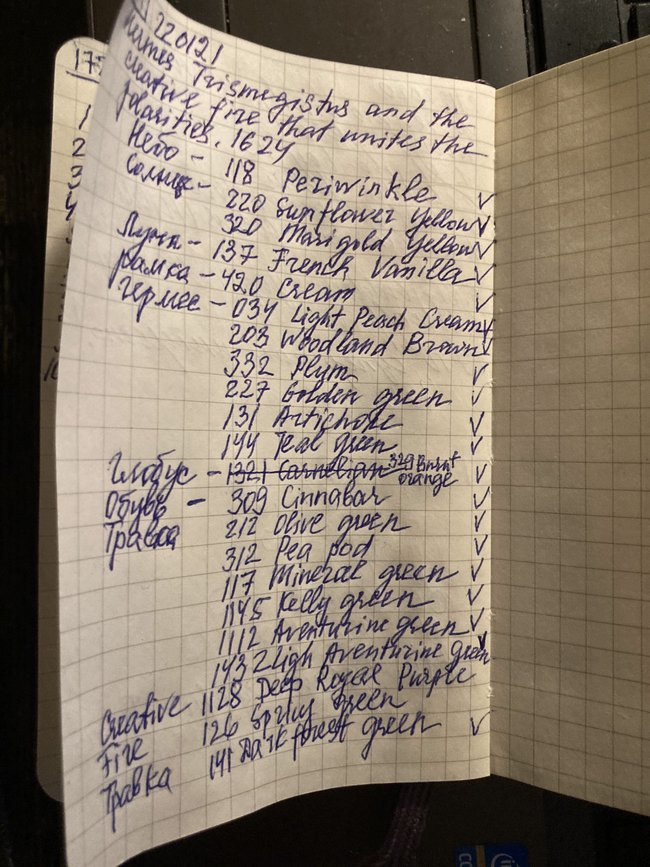 220121
Hermes Trismegistus and the
creative fire that unites the
polarities. 1624
Небо - 118 Periwinkle ✓
Солнце - 220 Sunflower Yellow ✓
320 Marigold Yellow ✓
Луна - 137 French Vanilla ✓
рамка - 420 Cream ✓
Гермес - 034 Light Peach Cream ✓
203 Woodland Brown ✓
332 Plum ✓
227 Golden green ✓
131 Artichoke ✓
144 Teal green ✓
Глобус - 1321 Carnelian 329 Burnt orange ✓
Обувь - 309 Cinnabar ✓
Травка 212 Olive green ✓
312 Pea pod ✓
117 Mineral green ✓
1145 Kelly green ✓
1112 Aventurine green ✓
1432 Ligh Aventurine green ✓
Creative 1128 Deep Royal Purple
Fire 126 Spring green
Травка 141 Dark forest green ✓
17
1
2
3
4